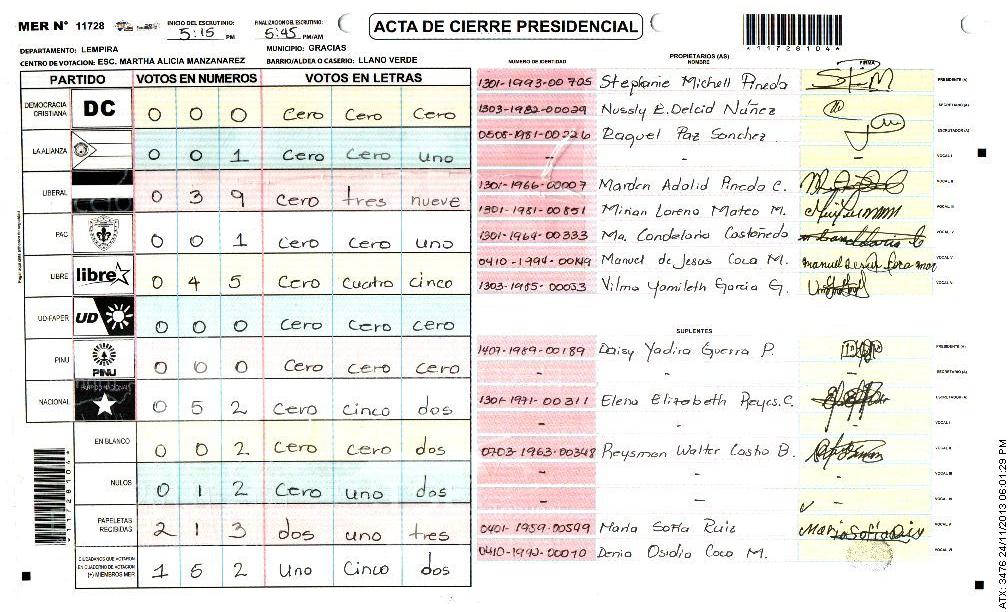 MER N° 11728
INICIO DEL ESCRUTINIO: 5:15 PM
FINALIZACION DEL ESCRUTINIO: 5:45 PM/AM
ACTA DE CIERRE PRESIDENCIAL
11728104
DEPARTAMENTO: LEMPIRA
MUNICIPIO: GRACIAS
CENTRO DE VOTACION: ESC. MARTHA ALICIA MANZANAREZ
BARRIO/ALDEA O CASERIO: LLANO VERDE
PARTIDO VOTOS EN NUMEROS VOTOS EN LETRAS
DEMOCRACIA CRISTIANA DC 0 0 0 Cero Cero Cero
LA ALIANZA 0 0 1 Cero Cero uno
LIBERAL 0 3 9 Cero tres nueve
PAC 0 0 1 Cero Cero uno
LIBRE libre 0 4 5 Cero Cuatro Cinco
UD-FAPER UD 0 0 0 Cero Cero Cero
PINU PINU 0 0 0 Cero Cero Cero
NACIONAL 0 5 2 Cero Cinco dos
EN BLANCO 0 0 2 Cero Cero dos
NULOS 0 1 2 Cero uno dos
PAPELETAS RECIBIDAS 2 1 3 dos uno tres
CIUDADANOS QUE VOTARON EN CUADERNO DE VOTACION (+) MIEMBROS MER 1 5 2 Uno Cinco dos
11728104
PROPIETARIOS (AS)
NUMERO DE IDENTIDAD NOMBRE FIRMA
1301-1993-00705 Stephanie Michell Pineda PRESIDENTE (A)
1303-1982-00029 Nussly E. Delcid Núñez SECRETARIO (A)
Raquel Paz Sanchez ESCRUTADOR (A)
- - - VOCAL I
1301-1966-00007 Marden Adolid Pineda C. VOCAL II
1301-1981-00851 Mirian Lorena Mateo M. VOCAL III
1301-1964-00333 Ma. Candelaria Castañeda
0410-1994-00149 Manuel de Jesus Coca M. VOCAL V
1303-1985-00053 Vilma Yamileth Garcia G.
SUPLENTES
1407-1989-00189 Daisy Yadira Guerra P. PRESIDENTE (A)
- - - SECRETARIO (A)
1301-1971-00311 Elena Elizabeth Reyes. C. ESCRUTADOR (A)
- - - VOCAL I
0703-1963-00348 Reysman Walter Castro B. VOCAL II
- - - VOCAL III
- -
0401-1959-00599 Maria Sofia Ruiz Maria Sofia Ruiz VOCAL V
0410-1992-00070 Denia Osidia Coco M. VOCAL VI
ATX: 3476 24/11/2013 06:01:29 PM